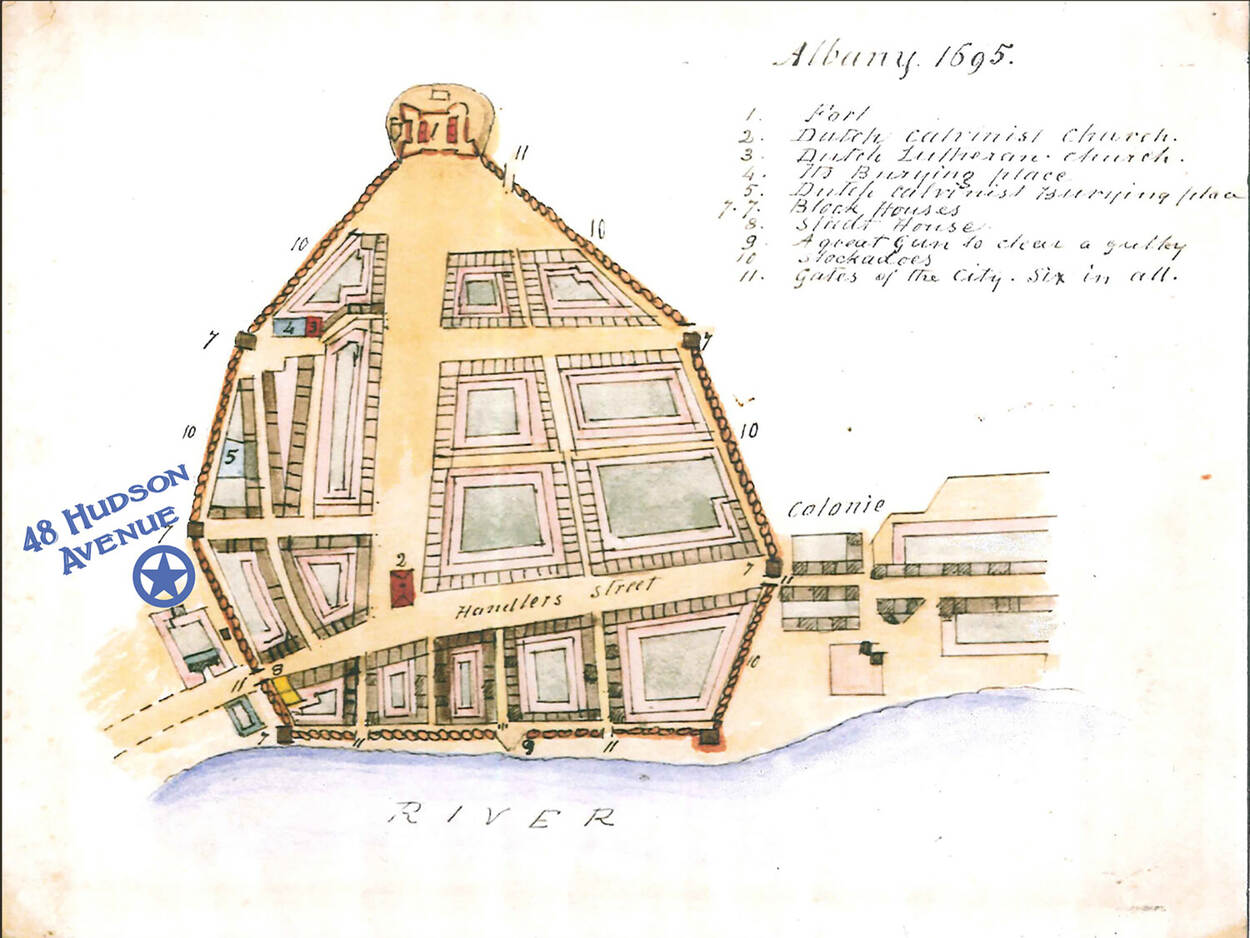 Albany. 1695.
1. Fort
2. Dutch Calvinist Church.
3. Dutch Lutheran church.
4. Its Burying place
5. Dutch Calvinist Burying place
7.7. Block Houses
8. Stadt House
9. A great Gun to clear a gulley
10 Stockadoes
11. Gates of the City. Six in all.
1
11
10
10
4 3
7
7
10
10
5
48 HUDSON
AVENUE
7
Colonie
2
7
11
Handlers Street
8
10
11
7
11
9
11
RIVER